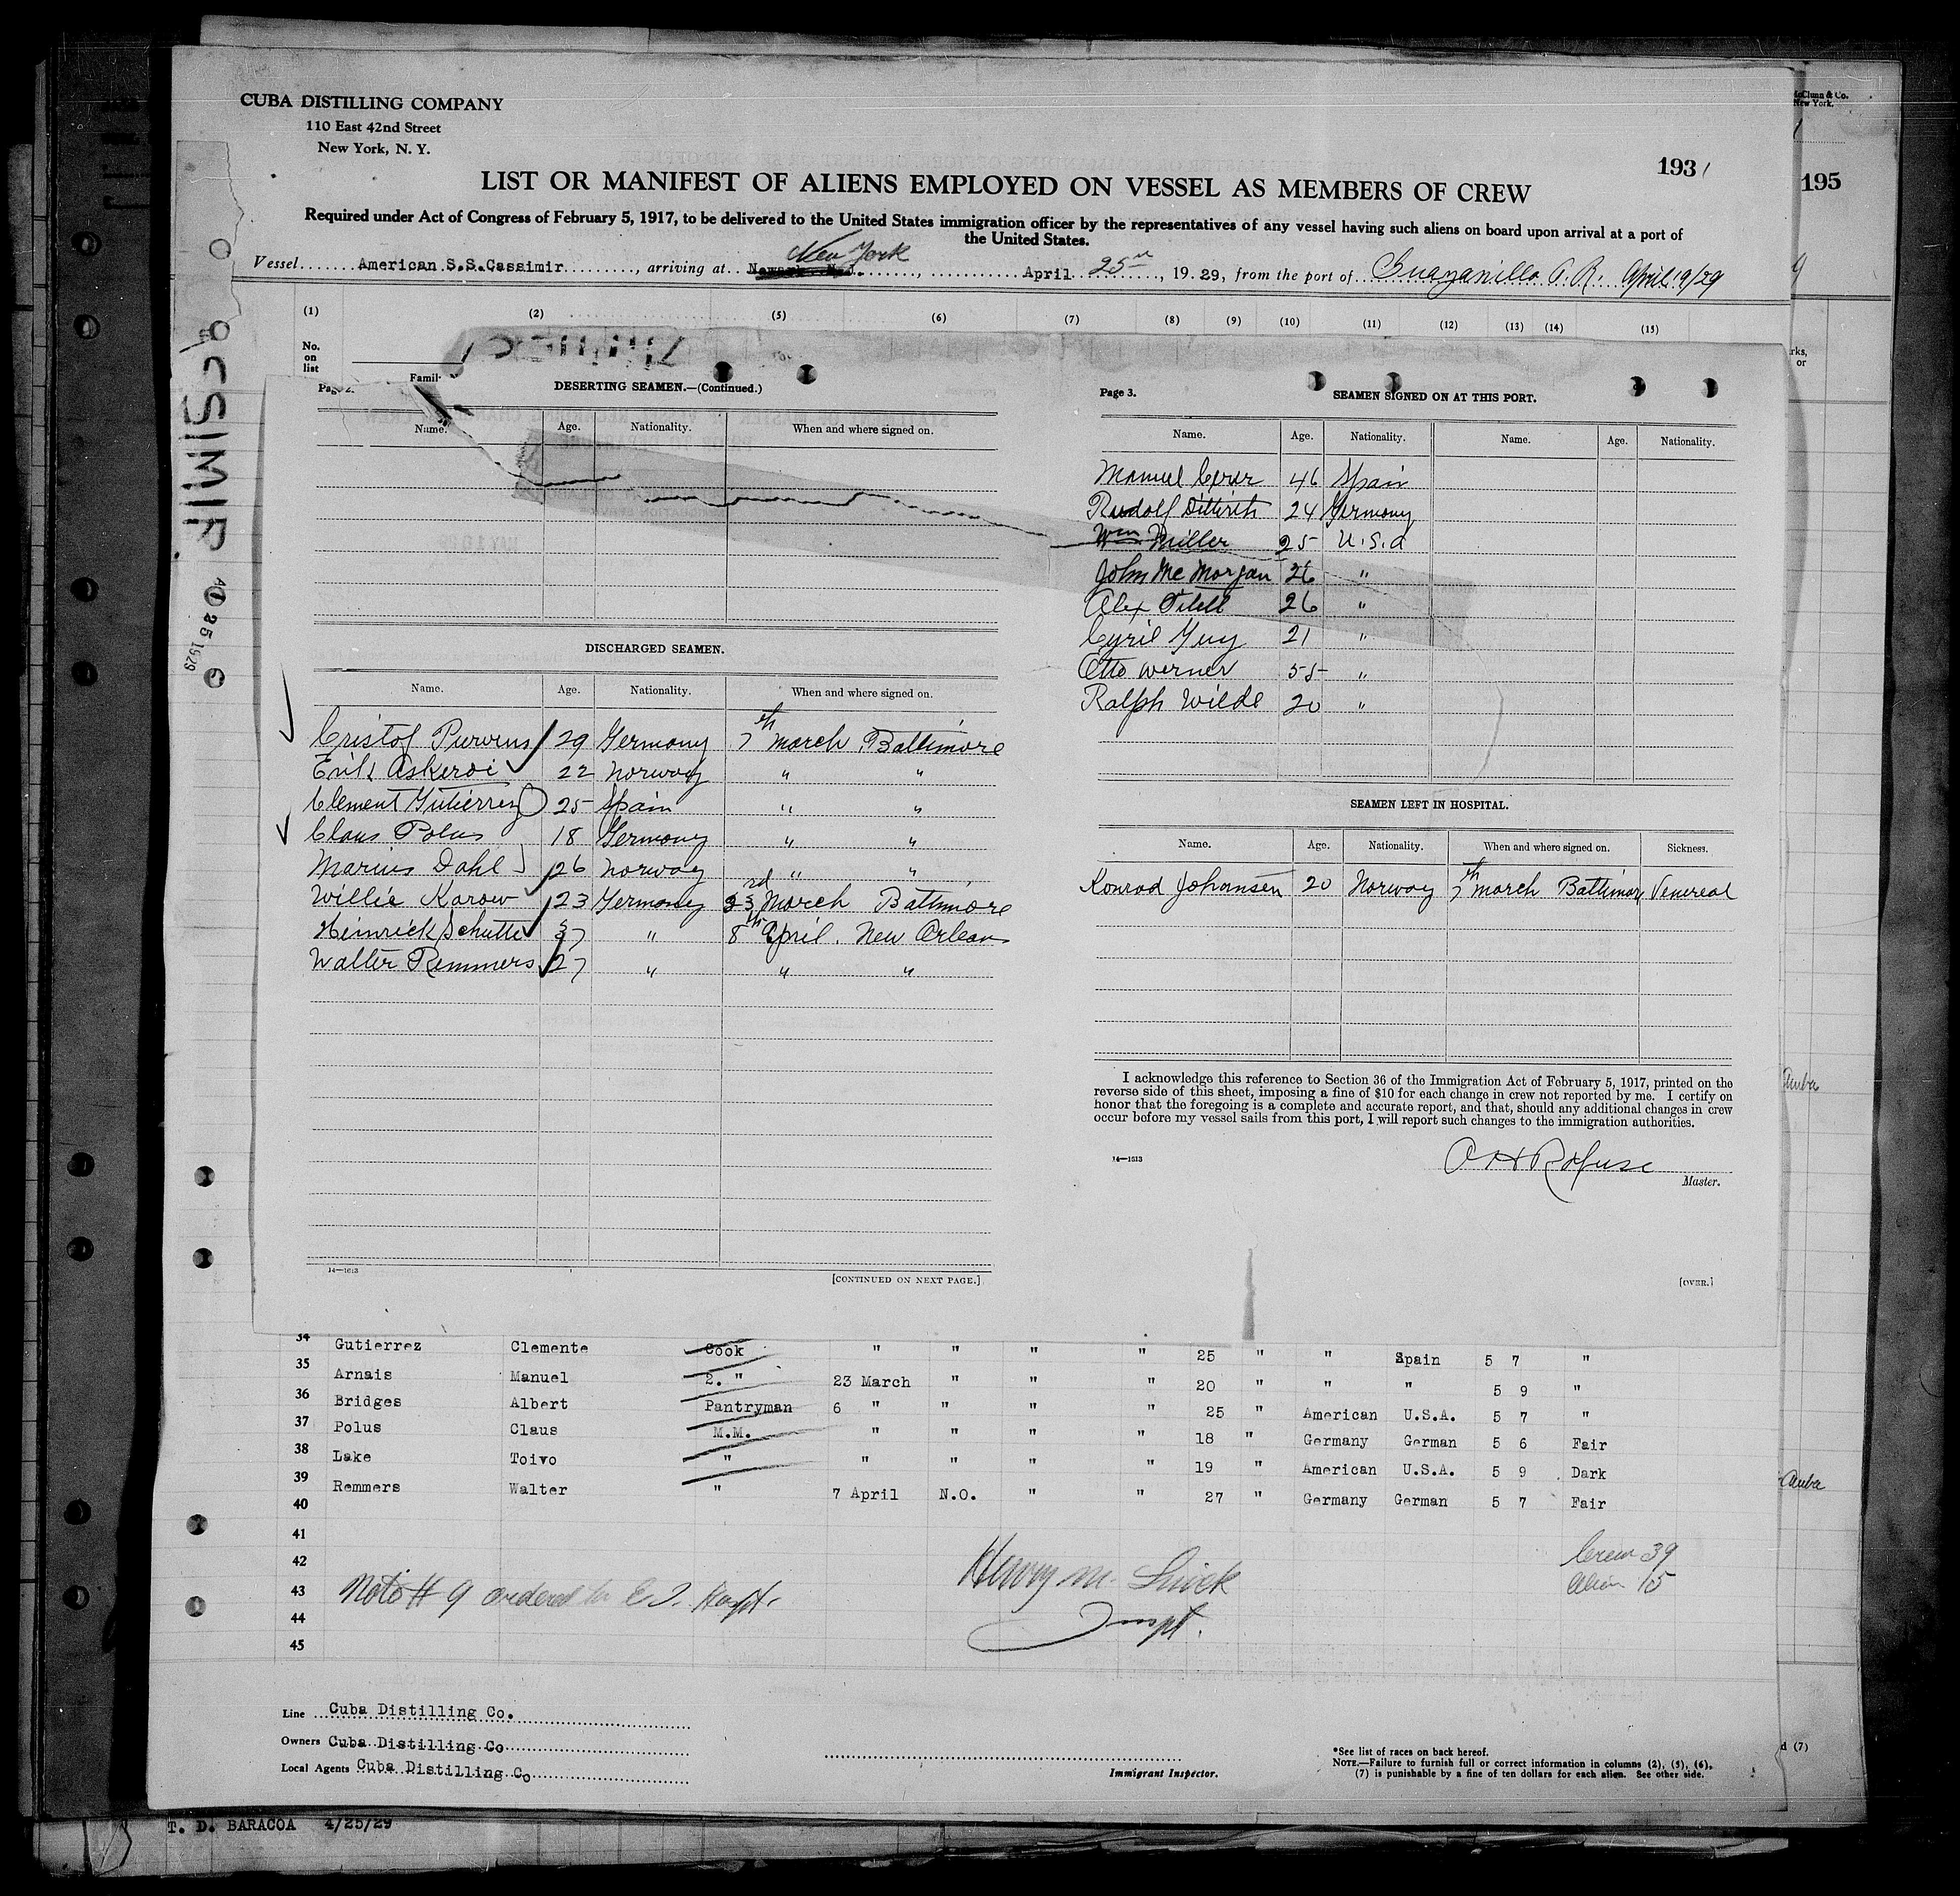 CUBA DISTILLING COMPANY
110 East 42nd Street
New York, N. Y.
193
195
McClunn & Co.
New York.
LIST OR MANIFEST OF ALIENS EMPLOYED ON VESSEL AS MEMBERS OF CREW
Required under Act of Congress of February 5, 1917, to be delivered to the United States immigration officer by the representatives of any vessel having such aliens on board upon arrival at a port of
the United States.
Vessel American S.S.Cassimir, arriving at New York, April 25, 1929, from the port of Guayanilla P.R. April 19/29
(1) (2) (5) (6) (7) (8) (9) (10) (11) (12) (13) (14) (15)
No.
on
list
CASSIMIR 25 1929
DESERTING SEAMEN.—(Continued.)
Name. Age. Nationality. When and where signed on.
DISCHARGED SEAMEN.
Name. Age. Nationality. When and where signed on.
Cristof Purvins 29 Germany 7th March Baltimore
Erik Askeroi 22 Norway " "
Clement Gutierrez 25 Spain " "
Claus Polus 18 Germany " "
Marius Dahl 26 Norway " "
Willie Karow 23 Germany 23rd March Baltimore
Heinrick Schutte 37 " 8th April. New Orleans
Walter Remmers 27 " " "
14—1613
[CONTINUED ON NEXT PAGE.]
Page 3.
SEAMEN SIGNED ON AT THIS PORT.
Name. Age. Nationality. Name. Age. Nationality.
Manuel 46 Spain
Rudolf Dittirth 24 Germany
Wm Miller 25 U.S.A
John Mc Morgan 26 "
Alex 26 "
Cyril Guy 21 "
Otto Werner 55 "
Ralph Wilde 20 "
SEAMEN LEFT IN HOSPITAL.
Name. Age. Nationality. When and where signed on. Sickness.
Konrad Johansen 20 Norway 7th March Baltimore Venereal
I acknowledge this reference to Section 36 of the Immigration Act of February 5, 1917, printed on the
reverse side of this sheet, imposing a fine of $10 for each change in crew not reported by me. I certify on
honor that the foregoing is a complete and accurate report, and that, should any additional changes in crew
occur before my vessel sails from this port, I will report such changes to the immigration authorities.
14—1613
Master.
[OVER.]
34 Gutierrez Clemente Cook " " " " 25 " " Spain 5 7 "
35 Arnais Manuel 2. " 23 March " " " 20 " " " 5 9 "
36 Bridges Albert Pantryman 6 " " " " 25 " American U.S.A. 5 7 "
37 Polus Claus M.M. " " " " 18 " Germany German 5 6 Fair
38 Lake Toivo " " " " " 19 " American U.S.A. 5 9 Dark
39 Remmers Walter " 7 April N.O. " " 27 " Germany German 5 7 Fair
40
41
42
43
44
45
Note # 9 ordered to E.I. Hospt.
Henry M.
Inspt.
Crew 39
Alien 15
Line Cuba Distilling Co.
Owners Cuba Distilling Co
Local Agents Cuba Distilling Co
Immigrant Inspector.
*See list of races on back hereof.
NOTE.—Failure to furnish full or correct information in columns (2), (5), (6),
(7) is punishable by a fine of ten dollars for each alien. See other side.
d (7)
T. D. BARACOA 4/25/29